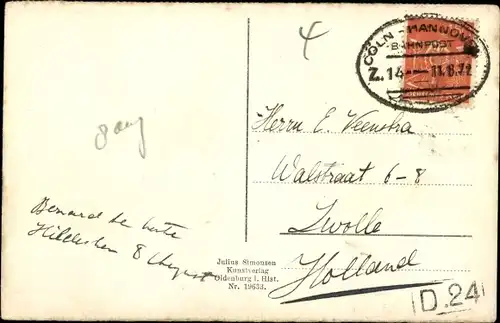 4
CÖLN - HANNOVER
BAHNPOST
Z. 14 11.8.22
8 aug
Herrn E. Veenstra
Walstraat 6-8
Zwolle
Holland
Hildeshm 8 August
Julius Simonsen
Kunstverlag
Oldenburg i. Hlst.
Nr. 19653.
D.24